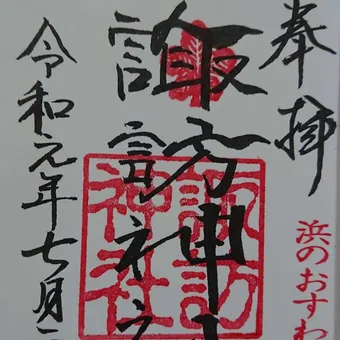 奉拝
浜のおすわ
諏訪神
諏訪
神社
令和元年七月